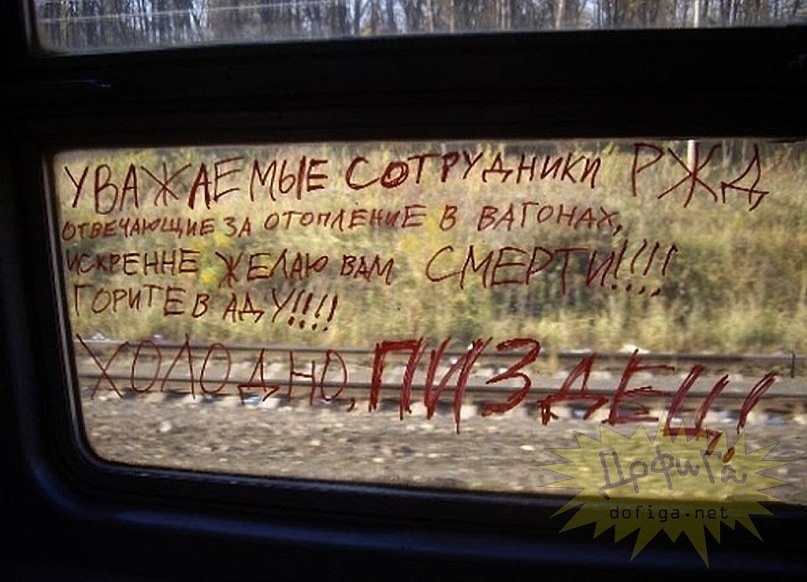 УВАЖАЕМЫЕ СОТРУДНИКИ РЖД
ОТВЕЧАЮЩИЕ ЗА ОТОПЛЕНИЕ В ВАГОНАХ,
ИСКРЕННЕ ЖЕЛАЮ ВАМ СМЕРТИ!!!!
ГОРИТЕ В АДУ!!!!
ХОЛОДНО, ПИЗДЕЦ!!
Дофига
dofiga.net